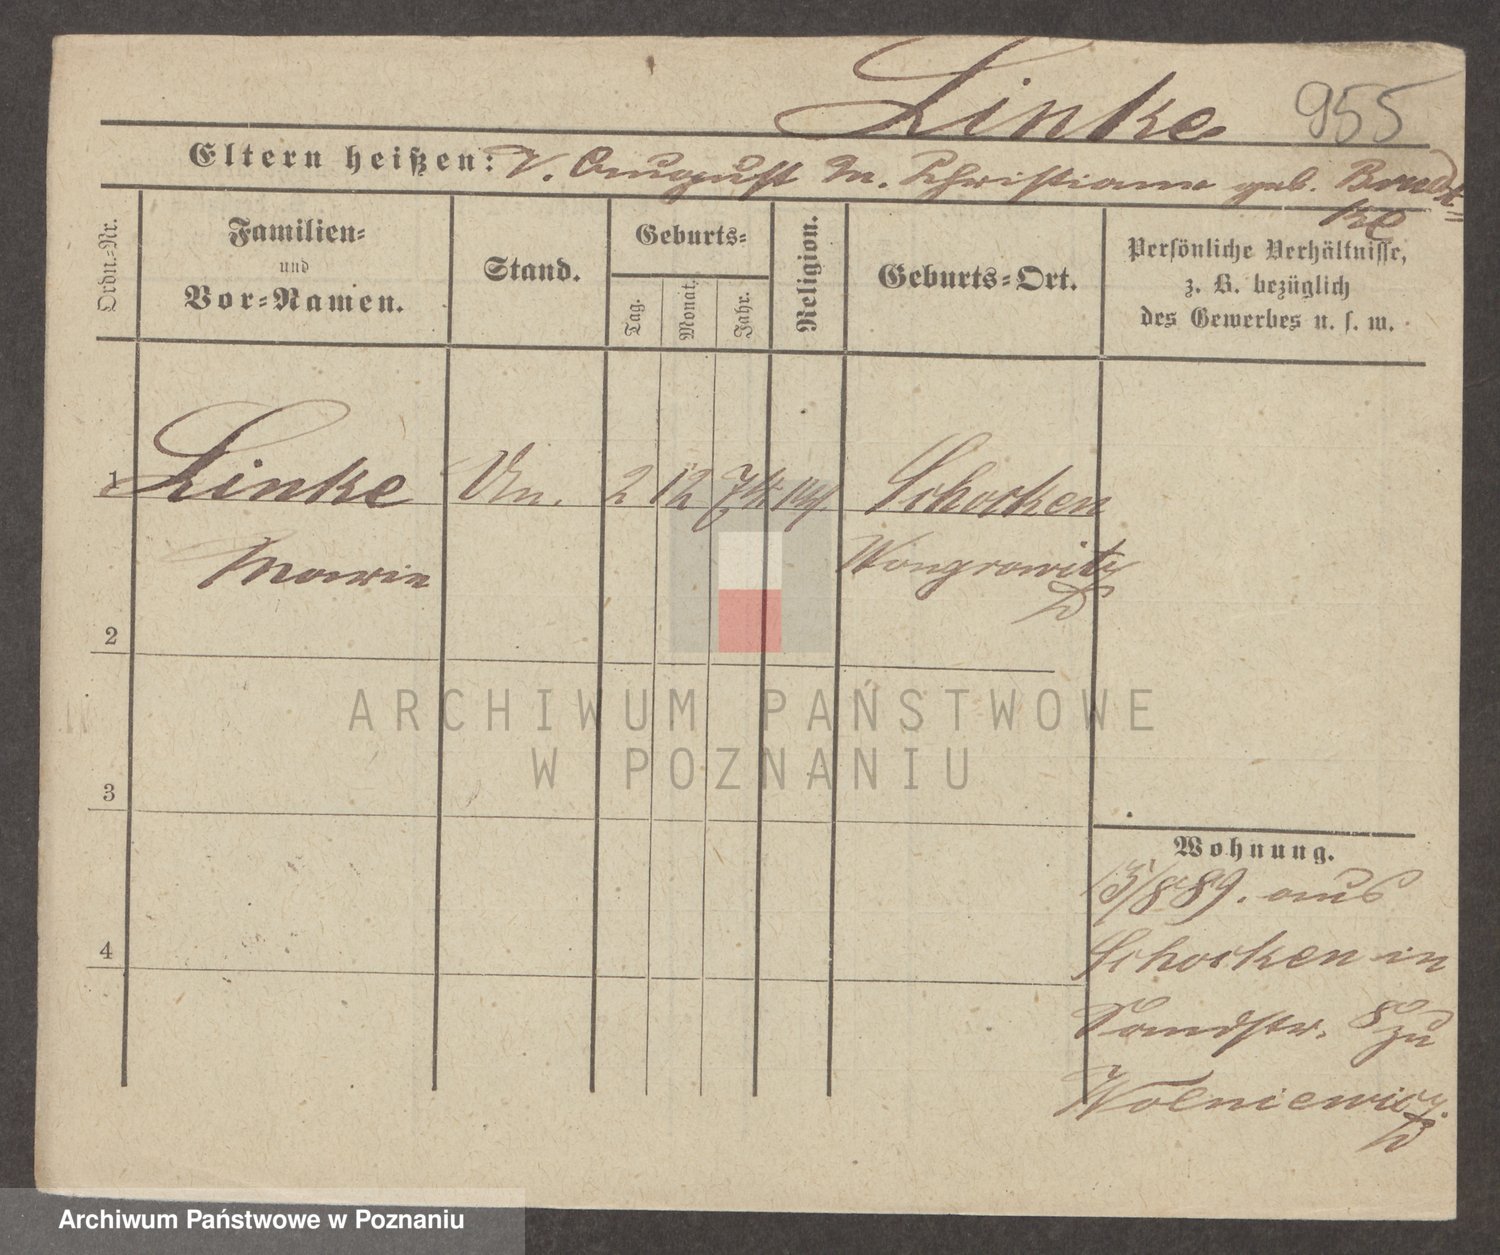 Linke 955
Eltern heißen: V. August M. Christiane geb.
Ordn.-Nr.
Familien-
und
Vor-Namen.
Stand.
Geburts-
Tag. Monat. Jahr.
Religion.
Geburts-Ort.
Persönliche Verhältnisse,
z. B. bezüglich
des Gewerbes u. s. w.
1 Linke 2 12 74 Schocken
Marie Wongrowitz
2
3
4
ARCHIWUM PAŃSTWOWE
W POZNANIU
Wohnung.
13/8 89. aus
Schocken in
Sandstr. 8 zu
Wolniewicz.
Archiwum Państwowe w Poznaniu